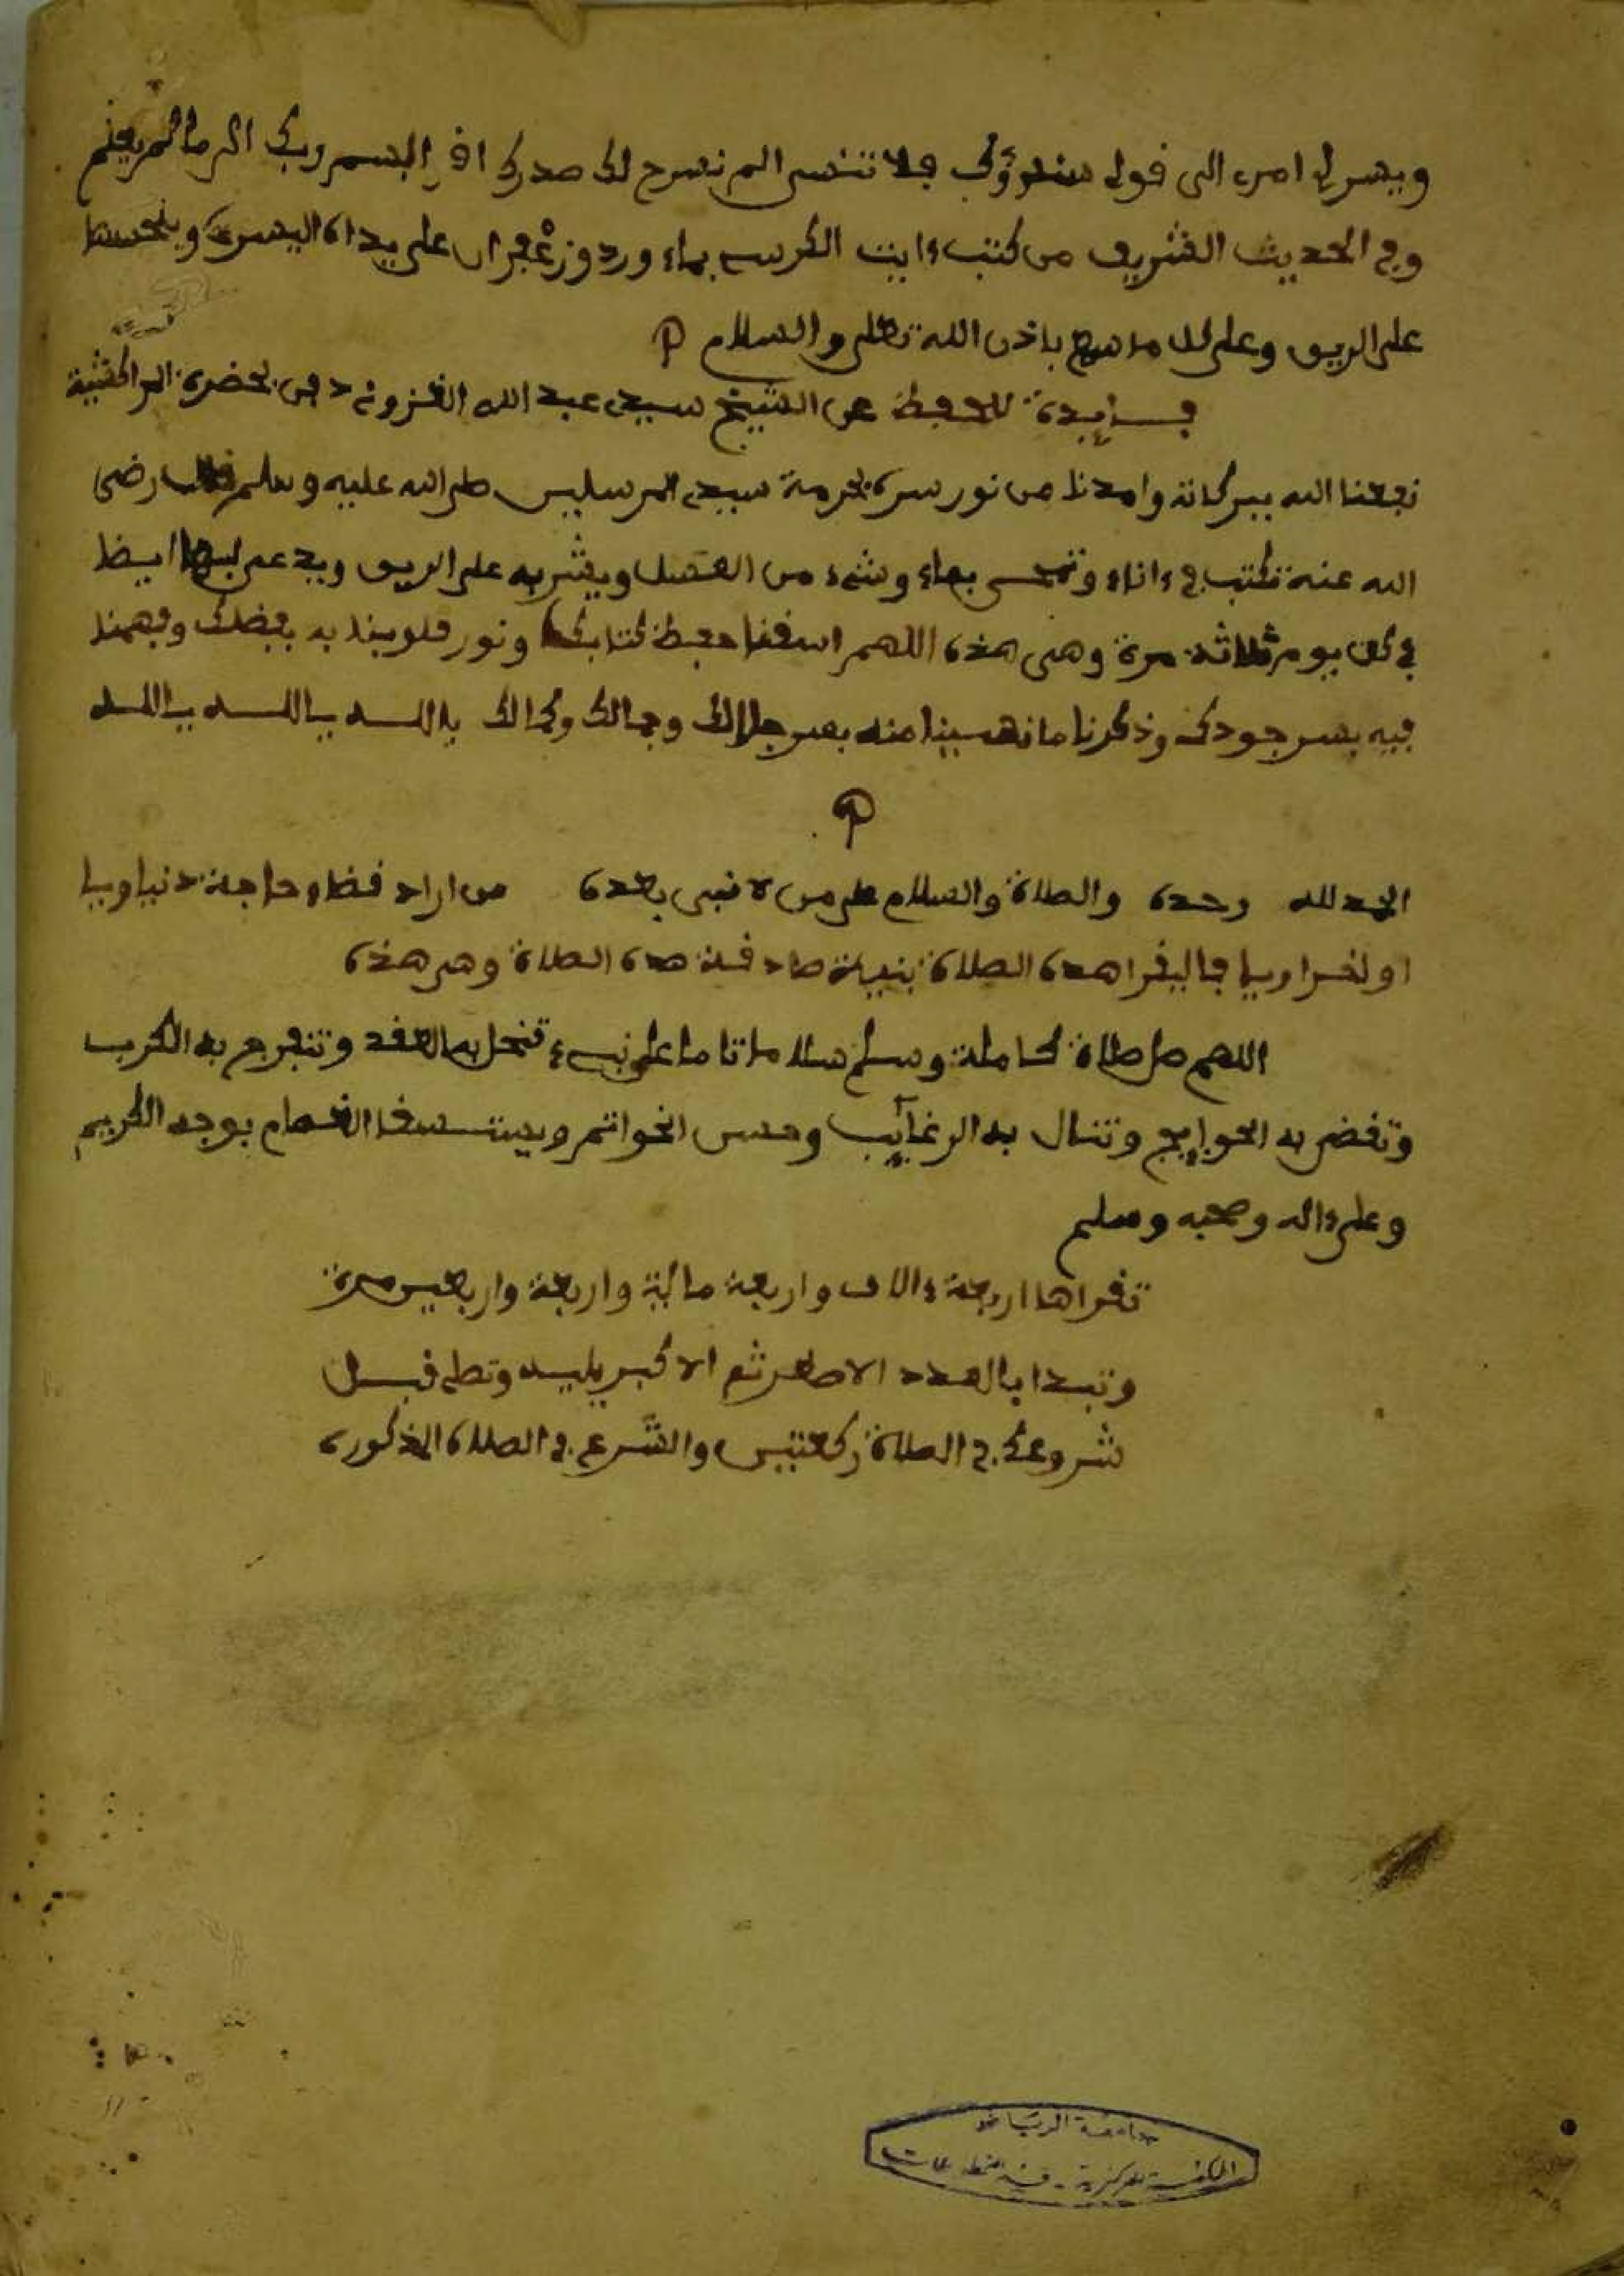 ويسر لي امري الى قولي سنقرؤك فلا تنسى الم نشرح لك صدرك اقرا باسم ربك الى ما لم يعلم
وفي الحديث الشريف من كتب ءايت الكرسي بماء ورد وزعفران على يداه اليسرى ويلحسها
على الريق وعلى كل ما سمع باذن الله تعلى والسلام
فايدة للحفظ عن الشيخ سيدي عبد الله الغزوني دفين بحضرة المراكشية
نفعنا الله ببركاته وامدنا من نور سره بحرمة سيد المرسلين صلى الله عليه وسلم قال رضي
الله عنه تكتب في ءاناء وتمحى بماء وشيء من العسل ويشربه على الريق ويدعى بها ايضا
في كل يوم ثلاثة مرة وهي هذه اللهم ارزقنا حفظ كتابك ونور قلوبنا به بفضلك وفهمنا
فيه بسر جودك وذكرنا ما نسينا منه بسر جلالك وجمالك وكمالك يا الله يا الله يا الله
الحمد لله وحده والصلاة والسلام على من لا نبي بعده من اراد قضاء حاجة دنياويا
او اخراويا فاليقرا هده الصلاة بنية صادقة هده الصلاة وهي هذه
اللهم صل صلاة كاملة وسلم سلاما تاما على نبيء تنحل به العقد وتنفرج به الكرب
وتقضى به الحوايج وتنال به الرغائب وحسن الخواتم ويستسقا الغمام بوجه الكريم
وعلى ءاله وصحبه وسلم
تقراها اربعة ءالاف واربعة ماية واربعة واربعين مرة
وتبدا بالعدد الاصغر ثم الاكبر يليه وتصلي قبل
شروعك في الصلاة ركعتين والشرع في الصلاة المذكورة
جامعة الرياض
المكتبة المركزية - قسم المخطوطات